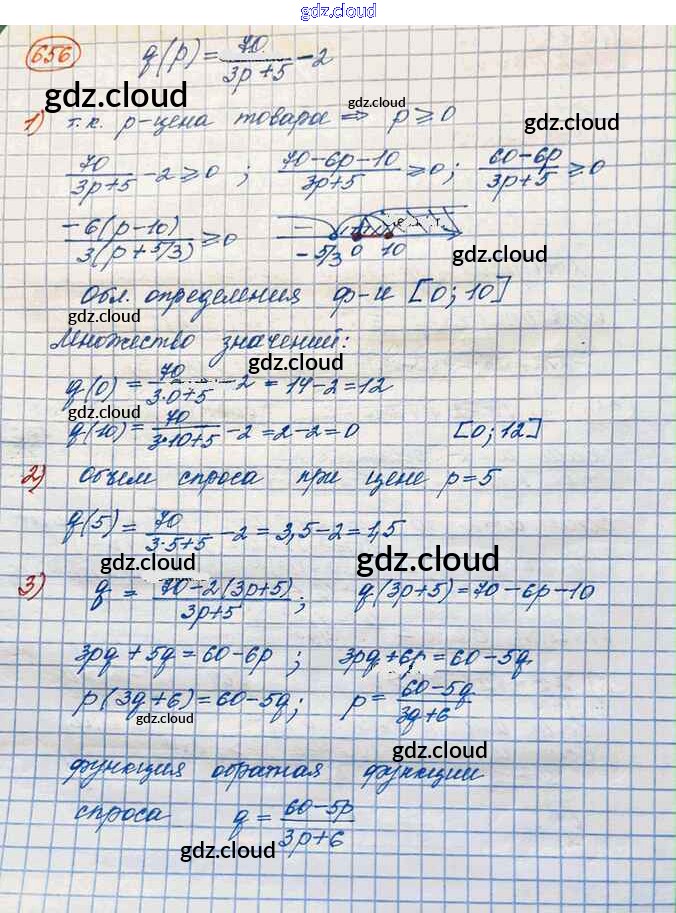 gdz.cloud
gdz.cloud
656 q(p) = 70/(3p+5) − 2
gdz.cloud
gdz.cloud
1) т.к. p-цена товара ⇒ p ≥ 0
gdz.cloud
70/(3p+5) − 2 ≥ 0 ; (70−6p−10)/(3p+5) ≥ 0 ; (60−6p)/(3p+5) ≥ 0
−6(p−10)/(3(p+5/3)) ≥ 0 − + −5/3 0 10
gdz.cloud
Обл. определения ф-и [0; 10]
gdz.cloud
Множество значений:
gdz.cloud
q(0) = 70/(3·0+5) − 2 = 14−2 = 12
gdz.cloud
q(10) = 70/(3·10+5) − 2 = 2−2 = 0 [0; 12]
2) Объем спроса при цене p = 5
q(5) = 70/(3·5+5) − 2 = 3,5−2 = 1,5
gdz.cloud
gdz.cloud
3) q = (70−2(3p+5))/(3p+5) ; q(3p+5) = 70−6p−10
3pq + 5q = 60−6p ; 3pq + 6p = 60−5q
p(3q+6) = 60−5q ; p = (60−5q)/(3q+6)
gdz.cloud
gdz.cloud
функция обратная функции
спроса q = (60−5p)/(3p+6)
gdz.cloud